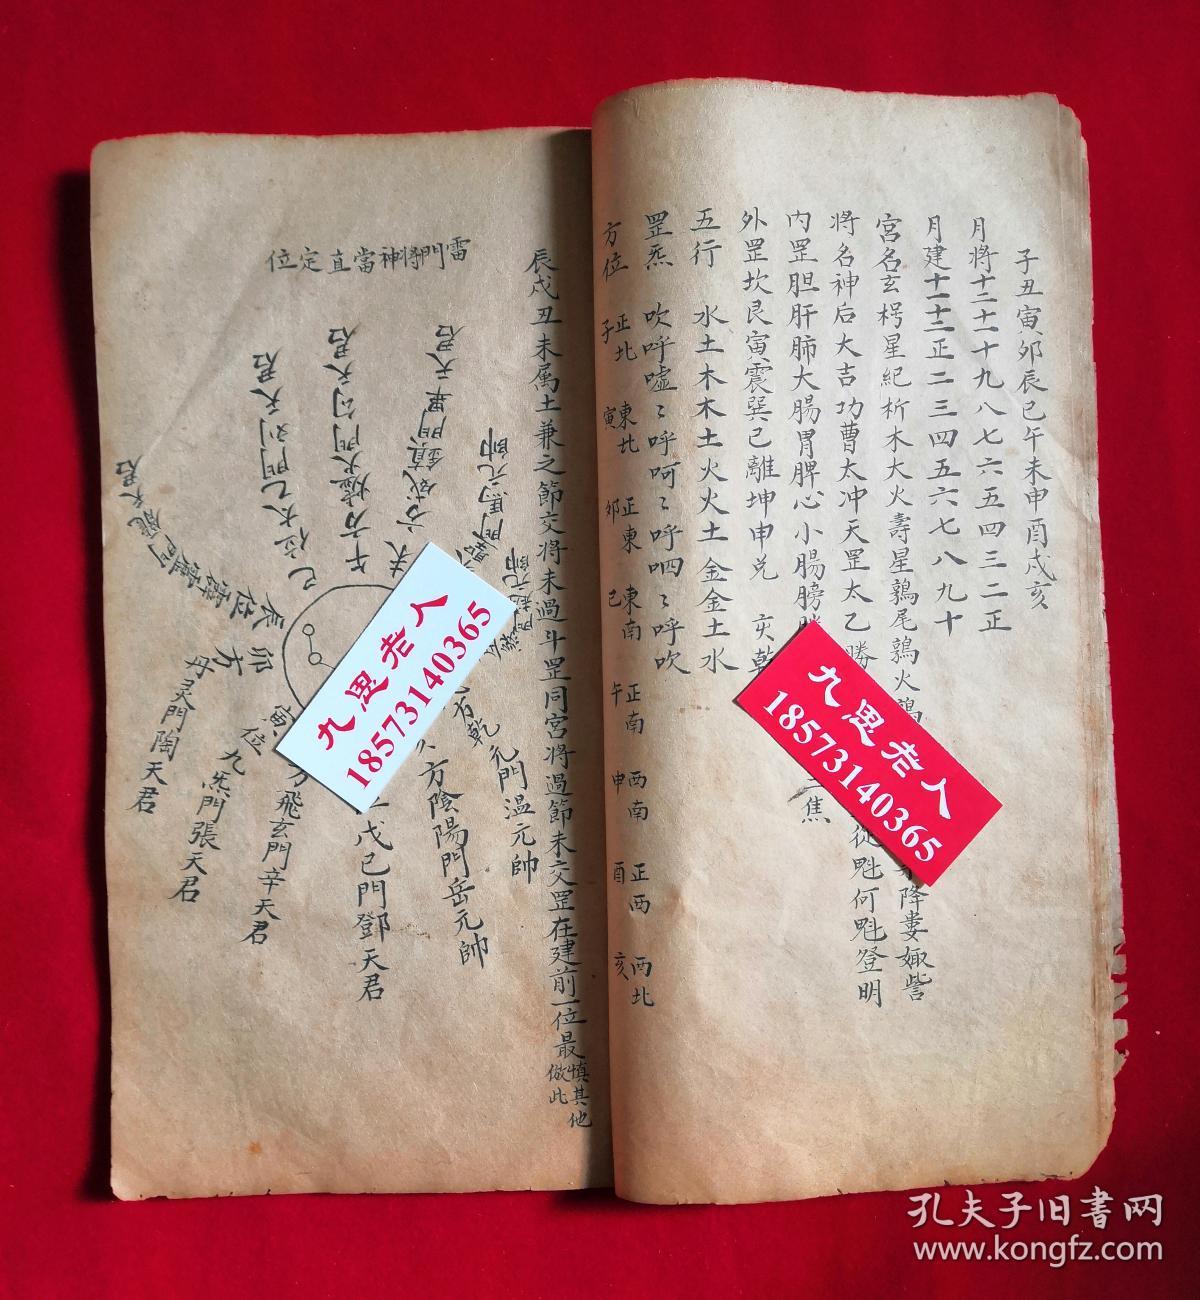 子丑寅卯辰巳午未申酉戌亥
月將十二十一十九八七六五四三二正
月建十一十二正二三四五六七八九十
宮名玄枵星紀析木大火壽星鶉尾鶉火鶉
降婁娵訾
將名神后大吉功曹太冲天罡太乙勝
從魁何魁登明
內罡胆肝肺大腸胃脾心小腸膀
焦
外罡坎艮寅震巽巳離坤申兌 亥乾
五行 水土木木土火火土金金土水
罡炁 吹呼噓〻呼呵〻呼呬〻呼吹
方位 正北子 東北寅 正東卯 東南巳 正南午 西南申 正西酉 西北亥
辰戌丑未属土兼之節交將未過斗罡同宮將過節未交罡在建前一位最慎其他倣此
雷門將神當直定位
未方威鎮門畢天君
午方火門勾天君
巳位太乙門刘天君
辰位霹靂門龐天君
卯方丹灵門陶天君
寅位九炁門張天君
方飛玄門辛天君
戊巳門鄧天君
方陰陽門岳元帥
方乾元門温元帥
門馬元帥
九思老人
18573140365
九思老人
18573140365
孔夫子旧书网
www.kongfz.com